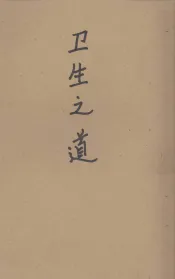 卫生之道